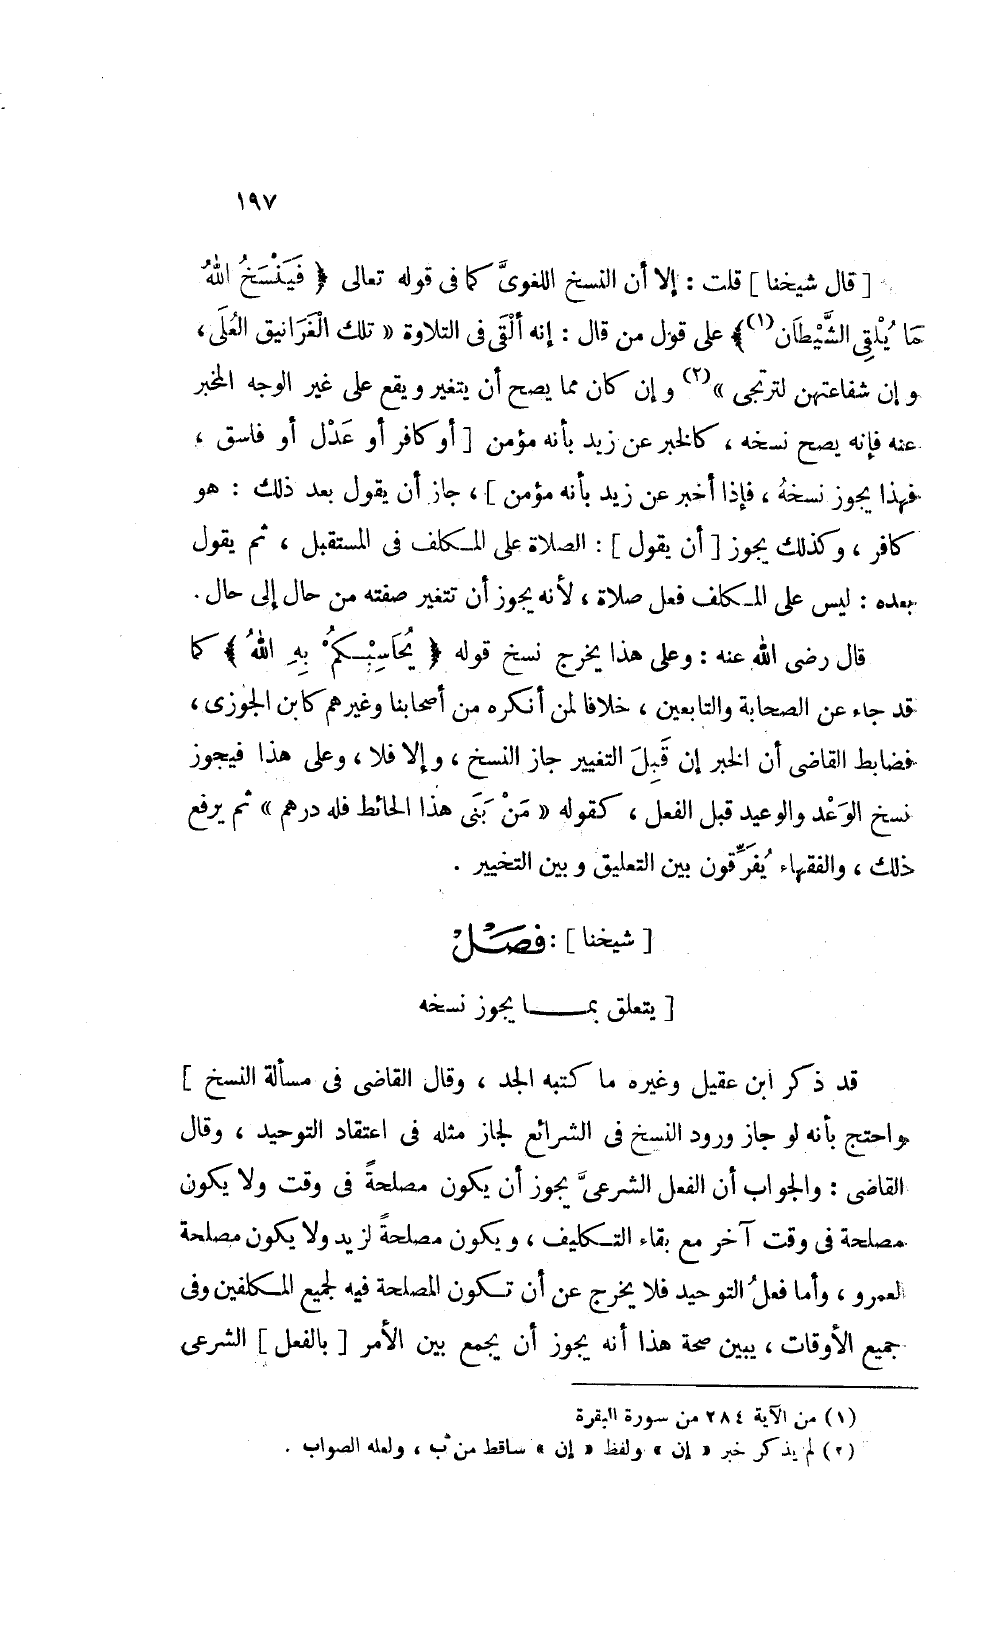 ١٩٧
[ قال شيخنا ] قلت : إلا أن النسخ اللغوىَّ كما فى قوله تعالى ﴿ فَيَنْسَخُ اللهُ
مَا يُلْقِى الشَّيْطَان(١)﴾ على قول من قال : إنه ألْقَى فى التلاوة « تلك الْغَرَانيق العُلَى ،
و إن شفاعتهن لترتجى »(٢) و إن كان مما يصح أن يتغير و يقع على غير الوجه المخبر
عنه فإنه يصح نسخه ، كالخبر عن زيد بأنه مؤمن [ أو كافر أو عَدْل أو فاسق ،
فهذا يجوز نسخهُ ، فإذا أخبر عن زيد بأنه مؤمن ] ، جاز أن يقول بعد ذلك : هو
كافر ، وكذلك يجوز [ أن يقول ] : الصلاة على المكلف فى المستقبل ، ثم يقول
بعده : ليس على المكلف فعل صلاة ، لأنه يجوز أن تتغير صفته من حال إلى حال .
قال رضى الله عنه : وعلى هذا يخرج نسخ قوله ﴿ يُحَاسِبْكمُْ بِهِ اللهُ ﴾ كما
قد جاء عن الصحابة والتابعين ، خلافا لمن أنكره من أصحابنا وغيرهم كابن الجوزى ،
فضابط القاضى أن الخبر إن قَبِلَ التغيير جاز النسخ ، و إلا فلا ، وعلى هذا فيجوز
نسخ الوَعْد والوعيد قبل الفعل ، كقوله « مَنْ بَنَى هذا الحائط فله درهم » ثم يرفع
ذلك ، والفقهاء يُفَرِّقون بين التعليق و بين التخيير .
[ شيخنا ] : فصَـــلْ
[ يتعلق بمـــا يجوز نسخه
قد ذكر ابن عقيل وغيره ما كتبه الجد ، وقال القاضى فى مسألة النسخ ]
واحتج بأنه لو جاز ورود النسخ فى الشرائع لجاز مثله فى اعتقاد التوحيد ، وقال
القاضى : والجواب أن الفعل الشرعىَّ يجوز أن يكون مصلحةً فى وقت ولا يكون
مصلحة فى وقت آخر مع بقاء التكليف ، و يكون مصلحةً لزيد ولا يكون مصلحة
لعمرو ، وأما فعلُ التوحيد فلا يخرج عن أن تكون المصلحة فيه لجميع المكلفين وفى
جميع الأوقات ، يبين صحة هذا أنه يجوز أن يجمع بين الأمر [ بالفعل ] الشرعى
(١) من الآية ٢٨٤ من سورة البقرة
(٢) لم يذكر خبر « إن » ولفظ « إن » ساقط من ب ، ولعله الصواب .